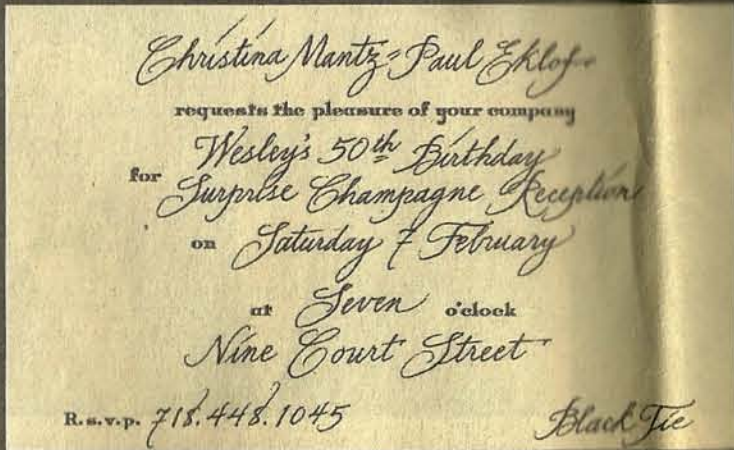 Christina Mantz - Paul Eklof
requests the pleasure of your company
for Wesley's 50th Birthday
Surprise Champagne Reception
on Saturday 7 February
at Seven o'clock
Nine Court Street
R.s.v.p. 718.448.1045 Black Tie